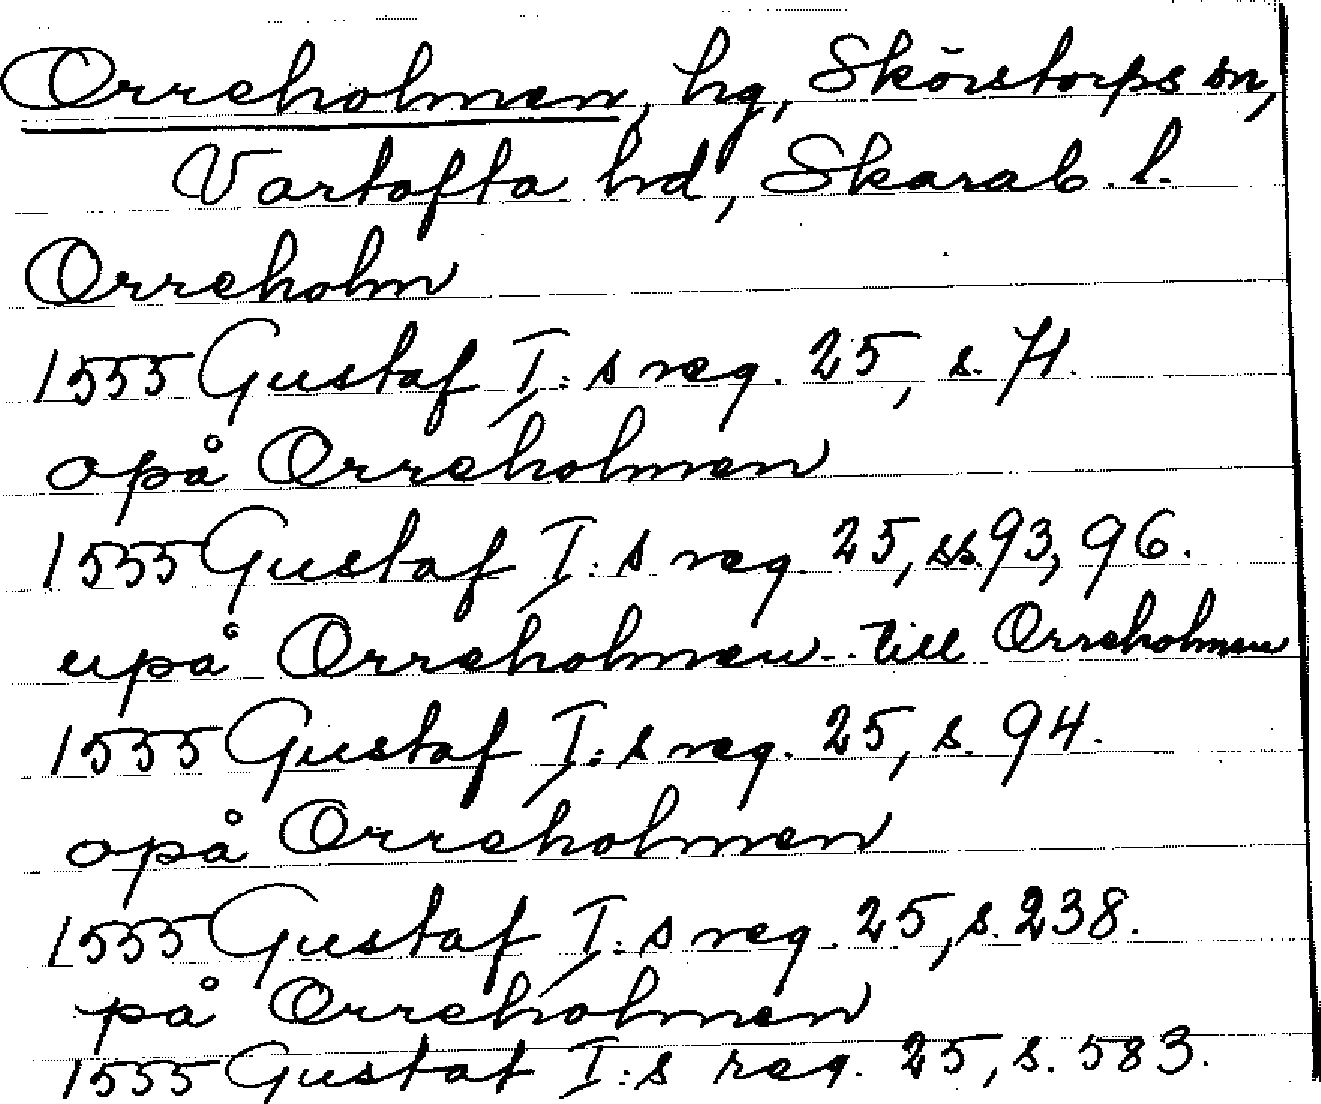 Orreholmen, hg, Skörstorps sn,
Vartofta hd, Skarab. l.
Orreholm
1555 Gustaf I:s reg. 25, s. 71.
opå Orreholmen
1555 Gustaf I:s reg. 25, ss. 93, 96.
upå Orreholmen - till Orreholmen
1555 Gustaf I:s reg. 25, s. 94.
opå Orreholmen
1555 Gustaf I:s reg. 25, s. 238.
på Orreholmen
1555 Gustaf I:s reg. 25, s. 583.